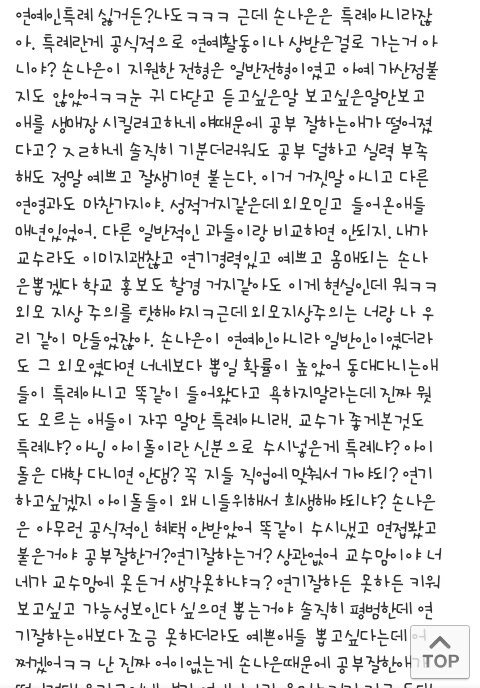 연예인특례 싫거든?나도ㅋㅋㅋ 근데 손나은은 특례아니라잖
아. 특례란게 공식적으로 연예활동이나 상받은걸로 가는거 아
니야? 손나은이 지원한 전형은 일반전형이였고 아예 가산점붙
지도 않았어ㅋㅋ눈 귀 다닫고 듣고싶은말 보고싶은말만보고
애를 생매장 시킬려고하네 얘때문에 공부 잘하는애가 떨어졌
다고? ㅈㄹ하네 솔직히 기분더러워도 공부 덜하고 실력 부족
해도 정말 예쁘고 잘생기면 붙는다. 이거 거짓말 아니고 다른
연영과도 마찬가지야. 성적거지같은데 외모믿고 들어온애들
매년있었어. 다른 일반적인 과들이랑 비교하면 안되지. 내가
교수라도 이미지괜찮고 연기경력있고 예쁘고 몸매되는 손나
은뽑겠다 학교 홍보도 할겸 거지같아도 이게 현실인데 뭐ㅋㅋ
외모 지상 주의를 탓해야지ㅋ근데 외모지상주의는 너랑 나 우
리 같이 만들었잖아. 손나은이 연예인아니라 일반인이였더라
도 그 외모였다면 너네보다 뽑일 확률이 높았어 동대다니는애
들이 특례아니고 똑같이 들어왔다고 욕하지말라는데 진짜 뭣
도 모르는 애들이 자꾸 말만 특례아니래. 교수가 좋게본것도
특례냐? 아님 아이돌이란 신분으로 수시넣은게 특례냐? 아이
돌은 대학 다니면 안댐? 꼭 지들 직업에 맞춰서 가야되? 연기
하고싶겠지 아이돌들이 왜 니들위해서 희생해야되냐? 손나은
은 아무런 공식적인 혜택 안받았어 똑같이 수시냈고 면접봤고
붙은거야 공부잘한거?연기잘하는거? 상관없어 교수맘이야 너
네가 교수맘에 못든거 생각못하냐ㅋ? 연기잘하든 못하든 키워
보고싶고 가능성보인다 싶으면 뽑는거야 솔직히 평범한데 연
기잘하는애보다 조금 못하더라도 예쁜애들 뽑고싶다는데 어
쩌겠어ㅋㅋ 난 진짜 어이없는게 손나은때문에 공부잘한애가
TOP